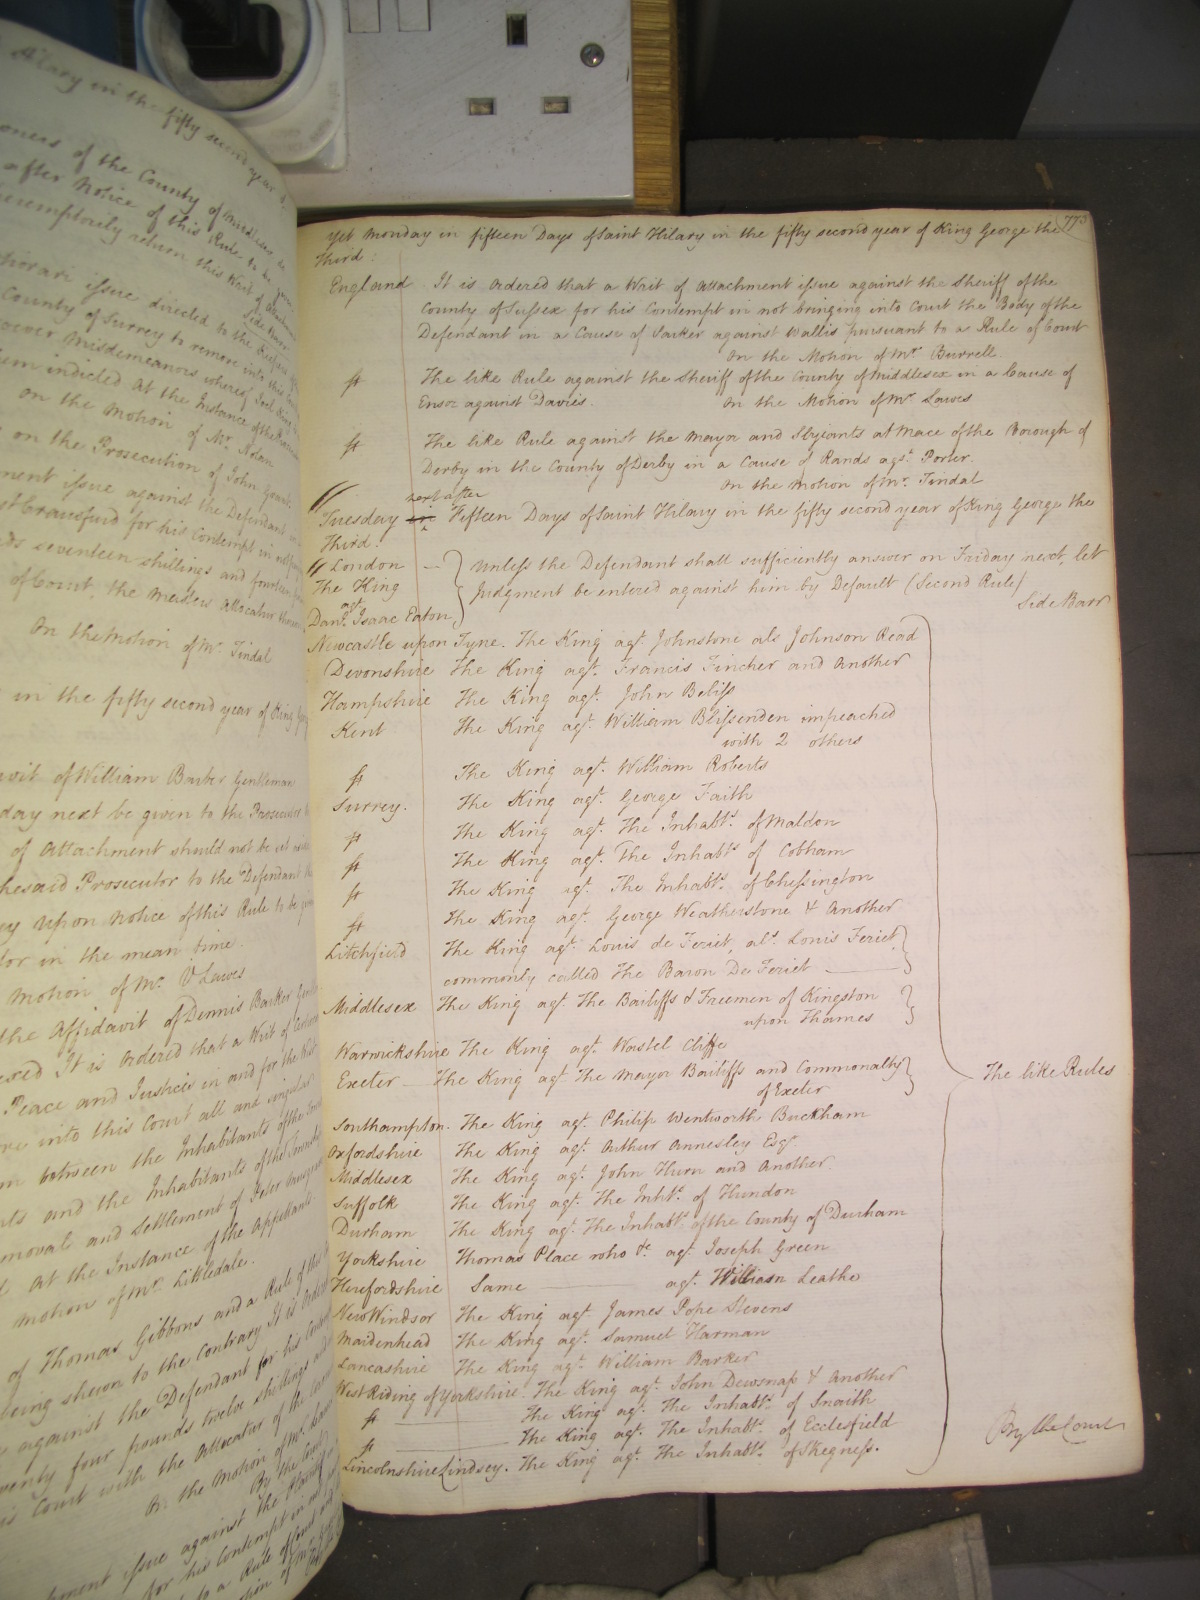 Hilary in the fifty second year
of the County of Middlesex
after Notice of this Rule to be
peremptorily return this Writ of
Side Barr
issue directed to the
County of Surrey to remove into this
Misdemeanors whereof
indicted At the Instance of the
on the Motion of Mr. Nolan
on the Prosecution of John
issue against the Defendant
for his Contempt in not
seventeen shillings and
of Court, the Masters Allocatur
On the Motion of Mr. Tindal
in the fifty second year of King
of William Barber Gentleman
day next be given to the Prosecutor
of Attachment should not be set
Prosecutor to the Defendant
upon Notice of this Rule to be
in the mean time.
Motion of Mr. V Lawes
the Affidavit of Dennis Barker
It is Ordered that a Writ of
Peace and Justices in and for the West
into this Court all and singular
between the Inhabitants of the
and the Inhabitants of the
and Settlement of Peter
At the Instance of the Appellants
Motion of Mr. Littledale.
of Thomas Gibbons and a Rule of this
being shewn to the Contrary It is Ordered
against the Defendant for his
four pounds twelve shillings
Court with the Allocatur of the
On the Motion of Mr.
By the Court
issue against The
for his Contempt in not
to a Rule of Court
773
Yet Monday in fifteen Days of Saint Hilary in the fifty second year of King George the
Third:
England It is Ordered that a Writ of Attachment issue against the Sheriff of the
County of Sussex for his Contempt in not bringing into Court the Body of the
Defendant in a Cause of Parker against Wallis pursuant to a Rule of Court
On the Motion of Mr. Burrell.
ss The like Rule against the Sheriff of the County of Middlesex in a Cause of
Ensor against Davies. On the Motion of Mr. Lawes
ss The like Rule against the Mayor and Serjeants at Mace of the Borough of
Derby in the County of Derby in a Cause of Rands agst. Porter.
On the Motion of Mr. Tindal
next after
Tuesday in Fifteen Days of Saint Hilary in the fifty second year of King George the
Third.
London
The King
agt.
Danl. Isaac Eaton
Unless the Defendant shall sufficiently answer on Friday next, let
Judgment be entered against him by Default (Second Rule)
Side Barr
Newcastle upon Tyne. The King agt. Johnstone als Johnson Read
Devonshire The King agt. Francis Fincher and Another
Hampshire The King agt. John Beliss
Kent The King agt. William Blissenden impeached
with 2 others
ss The King agt. William Roberts
Surrey. The King agt. George Faith
ss The King agt. The Inhabts. of Maldon
ss The King agt. The Inhabts of Cobham
ss The King agt. The Inhabts. of Chessington
ss The King agt. George Weatherstone & Another
Litchfield The King agt. Louis de Feriet, als. Louis Feriet,
commonly called The Baron De Feriet
Middlesex The King agt. The Bailiffs & Freemen of Kingston
upon Thames
Warwickshire The King agt. Wastel Cliffe
Exeter The King agt The Mayor Bailiffs and Commonalty
of Exeter
The like Rules
Southampton. The King agt. Philip Wentworth Buckham
Oxfordshire The King agt. Arthur Annesley Esqr
Middlesex The King agt. John Hurn and Another.
Suffolk The King agt. The Inhts. of Hundon
Durham The King agt. The Inhabts. of the County of Durham
Yorkshire Thomas Place who &c agt. Joseph Green
Herefordshire Same agt. William Leathe
New Windsor The King agt James Pope Stevens
Maidenhead The King agt. Samuel Harman
Lancashire The King agt. William Barker
West Riding of Yorkshire. The King agt. John Dewsnap & Another
ss The King agt. The Inhabts. of Snaith
ss The King agt. The Inhabts. of Ecclesfield
Lincolnshire Lindsey. The King agt The Inhabts. of Skegness.
By the Court